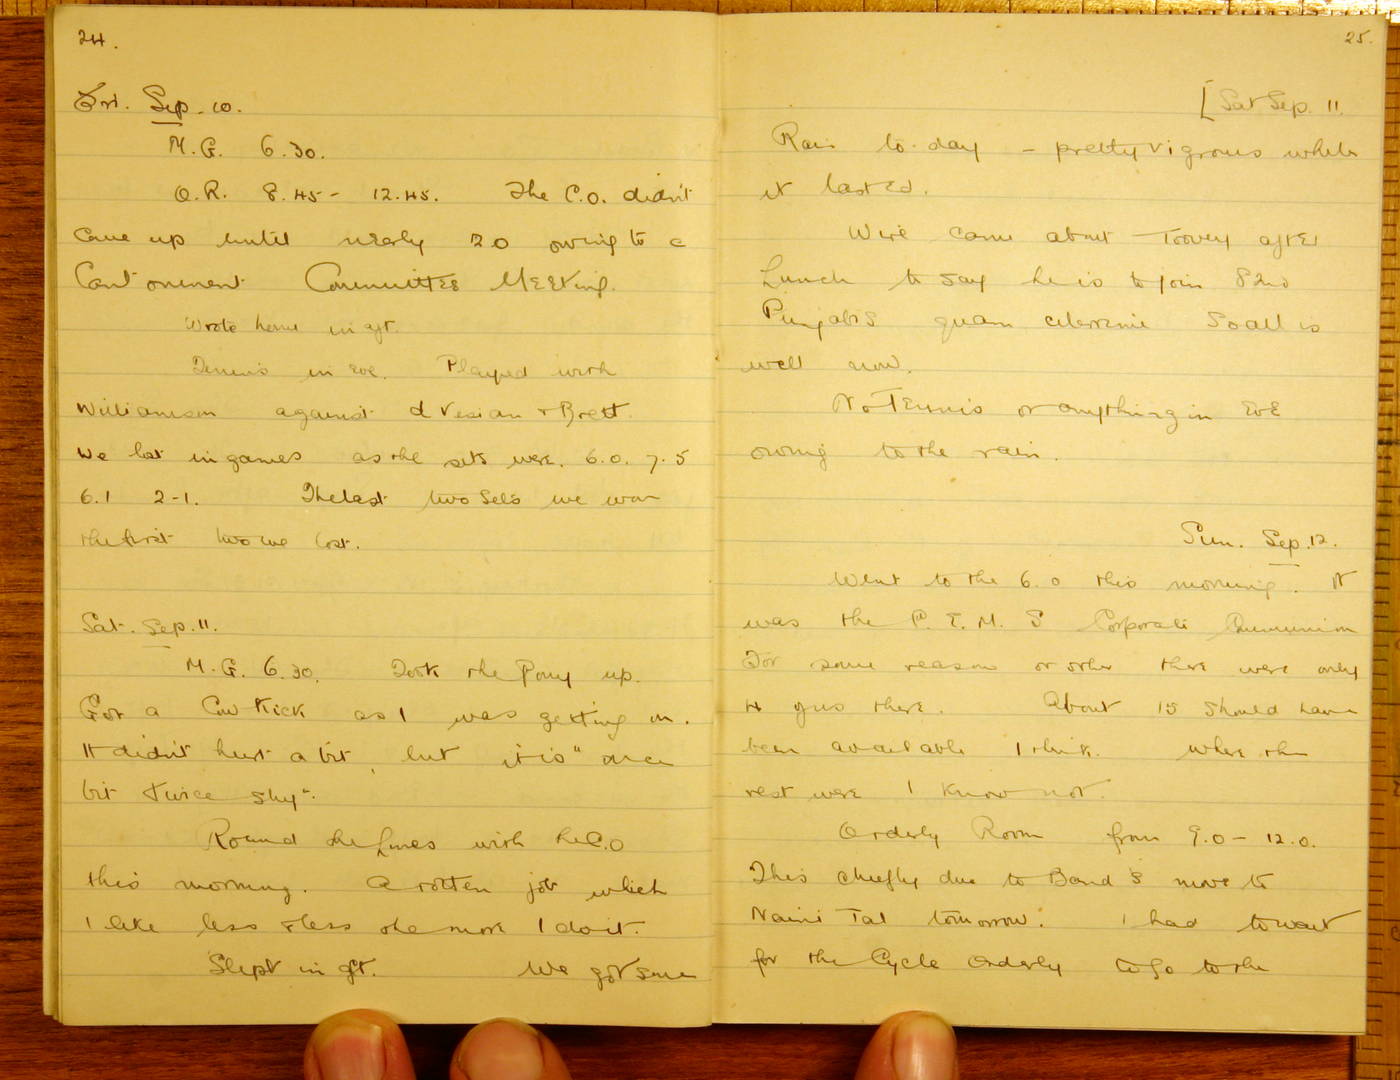 24.
Fri. Sep. 10.
M.G. 6.30.
O.R. 8.45 - 12.45. The C.O. didn't
come up until nearly 20 owing to a
Cantonment Committee Meeting.
Wrote home in aft.
Tennis in eve. Played with
Williamson against d Vesian & Brett.
We lost in games as the sets were. 6.0. 7.5
6.1 2-1. The last two sets we won
the first two we lost.
Sat. Sep. 11.
M.G. 6.30. Took the Pony up.
Got a Cow Kick as I was getting on.
It didn't hurt a bit, but it is "once
bit twice shy".
Round the Lines with the C.O
this morning. A rotten job which
I like less & less the more I do it.
Slept in aft. We got some
25.
[Sat Sep. 11.
Rain to-day - pretty vigrous while
it lasted.
Wire came about Toovey after
Lunch to say he is to join 82nd
Punjabis quam celerrime So all is
well now.
No Tennis or anything in Eve
owing to the rain.
Sun. Sep. 12.
Went to the 6.0 this morning. It
was the C.E.M.S Corporate Communion
For some reason or other there were only
4 of us there. About 15 should have
been available I think. Where the
rest were I know not.
Orderly Room from 9.0 - 12.0.
This chiefly due to Band's move to
Naini Tal tomorrow. I had to wait
for the Cycle Orderly to go to the